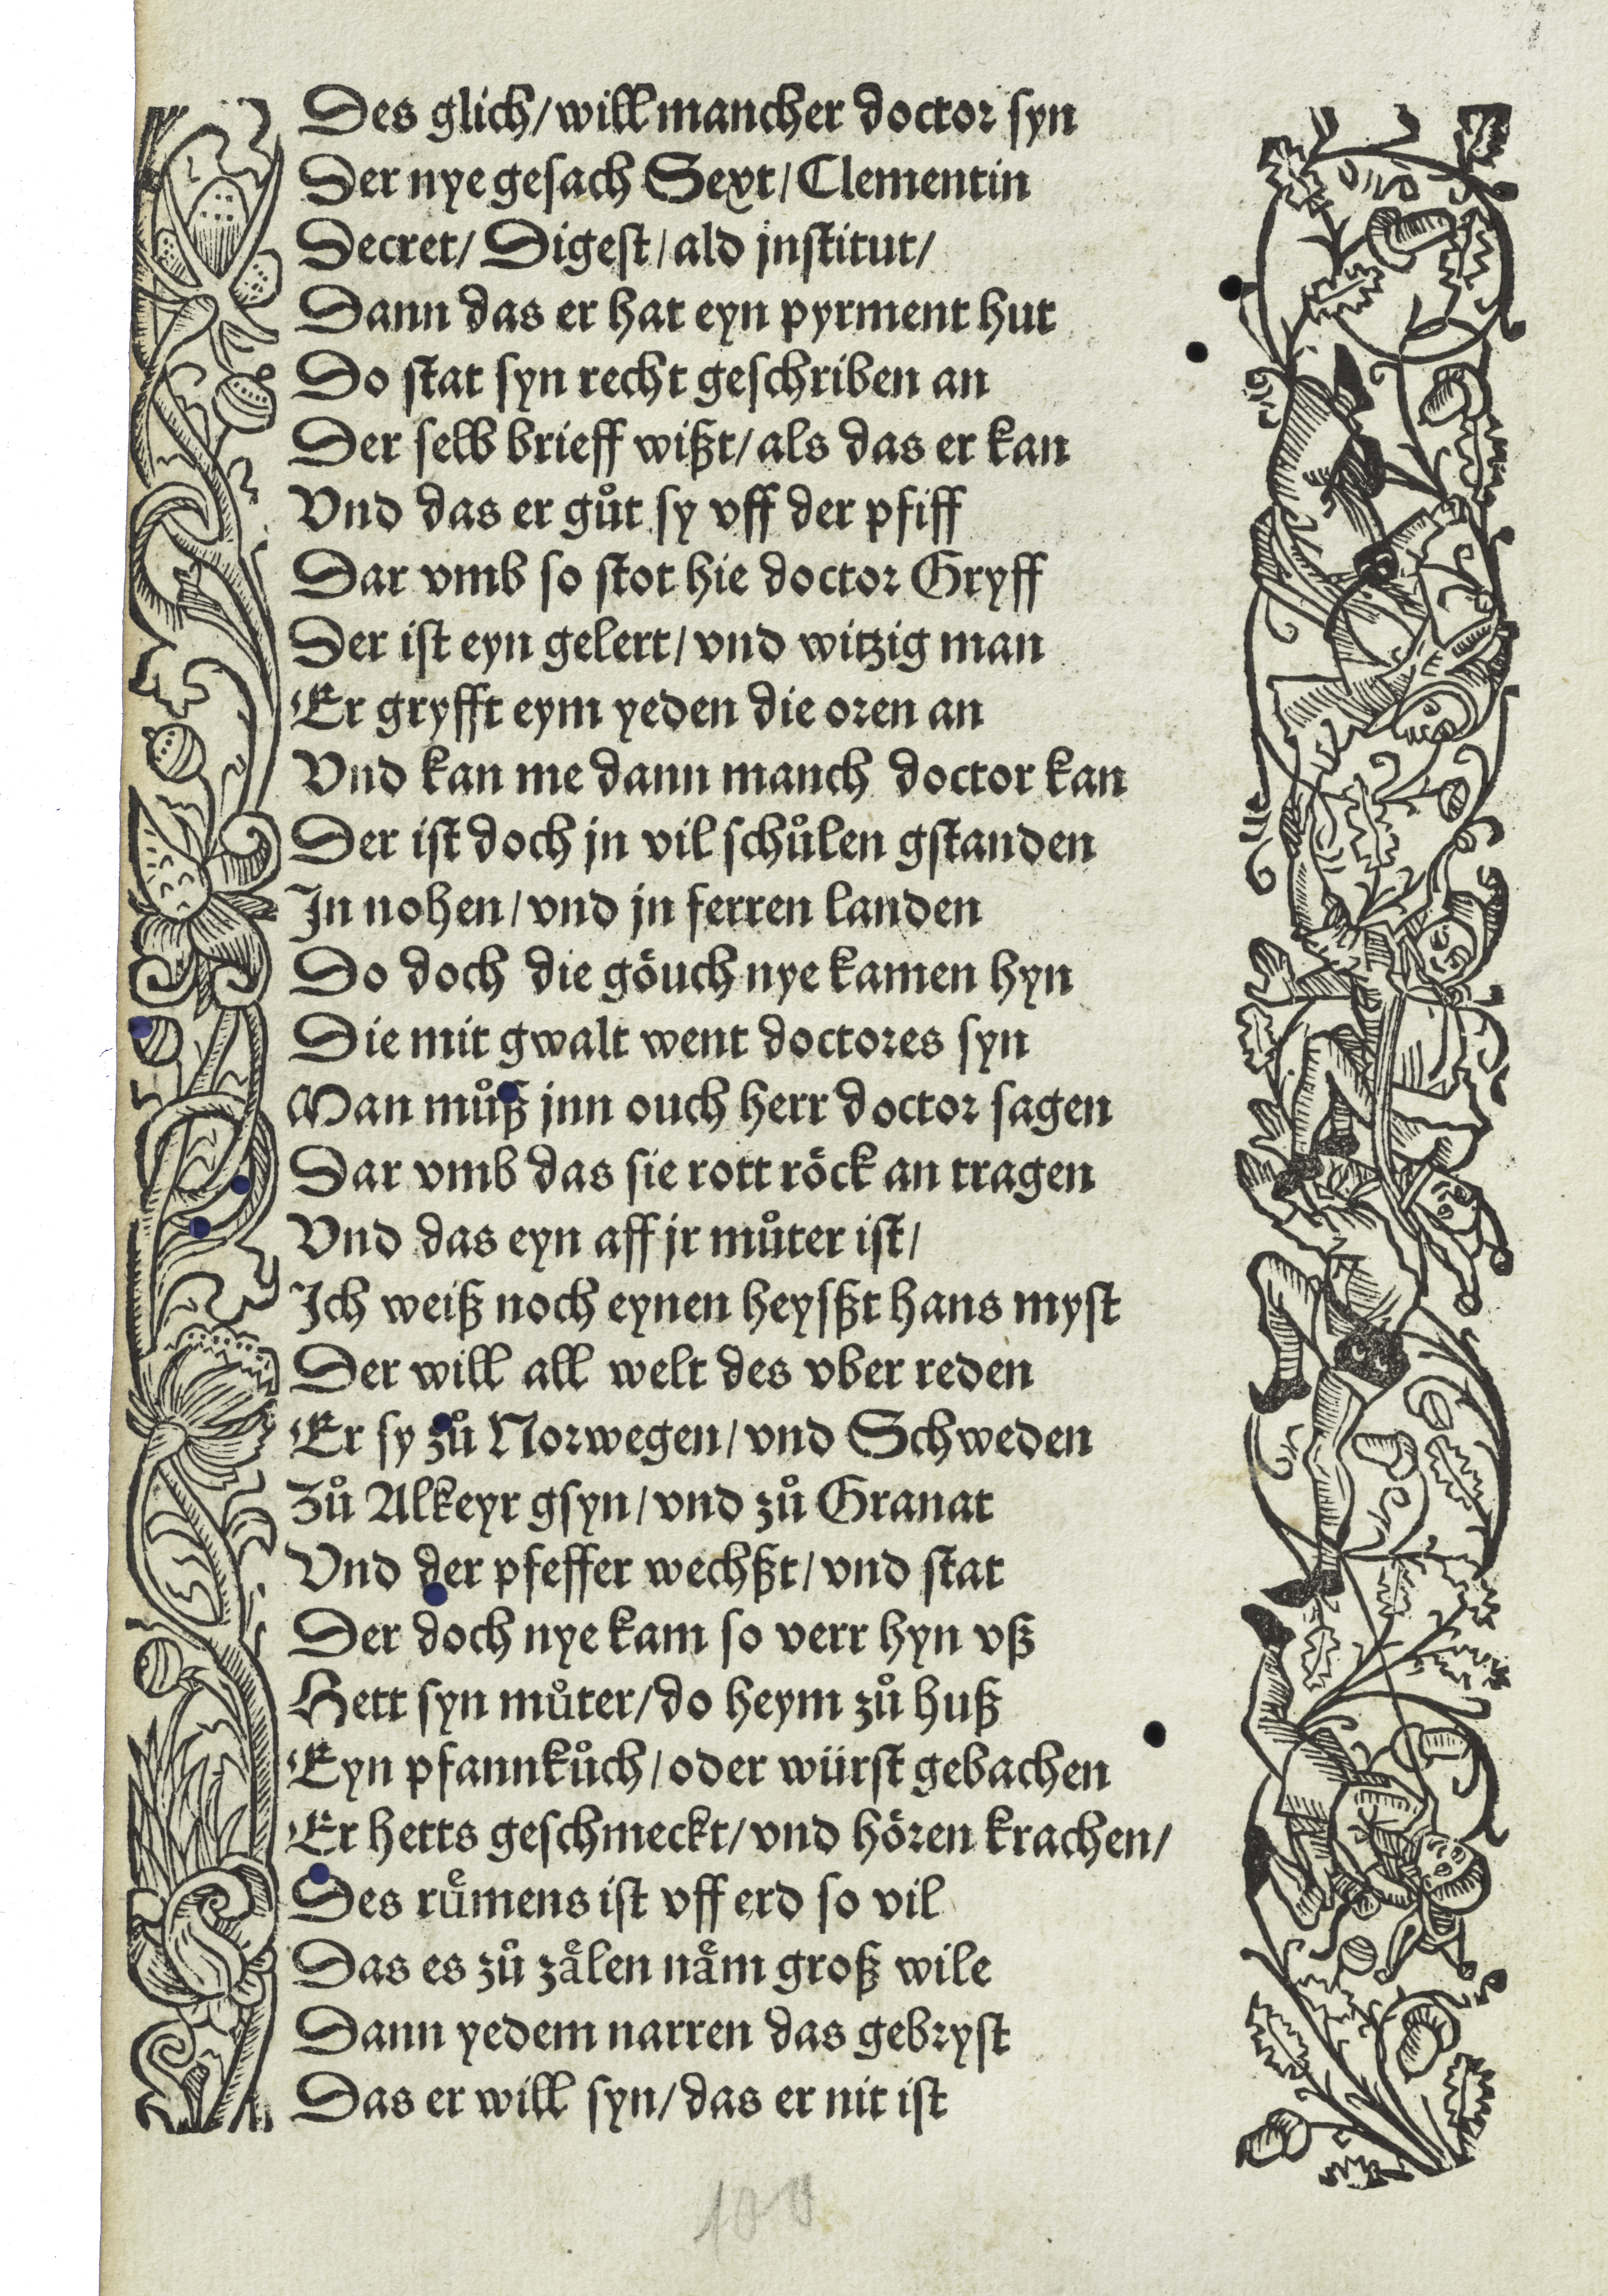 Des glich/ will mancher doctor syn
Der nye gesach Sext/ Clementin
Decret/ Digest/ ald jnstitut/
Dann das er hat eyn pyrment hut
Do stat syn recht geschriben an
Der selb brieff wißt/ als das er kan
Vnd das er guͦt sy vff der pfiff
Dar vmb so stot hie doctor Gryff
Der ist eyn gelert/ vnd witzig man
Er gryfft eym yeden die oren an
Vnd kan me dann manch doctor kan
Der ist doch jn vil schuͦlen gstanden
In nohen/ vnd jn ferren landen
Do doch die goͤuch nye kamen hyn
Die mit gwalt went doctores syn
Man muͦß jnn ouch herr doctor sagen
Dar vmb das sie rott roͤck an tragen
Vnd das eyn aff jr muͦter ist/
Ich weiß noch eynen heyßt hans myst
Der will all welt des vber reden
Er sy zuͦ Norwegen/ vnd Schweden
Zuͦ Alkeyr gsyn/ vnd zuͦ Granat
Vnd der pfeffer wechßt/ vnd stat
Der doch nye kam so verr hyn vß
Hett syn muͦter/ do heym zuͦ huß
Eyn pfannkuͦch/ oder würst gebachen
Er hetts geschmeckt/ vnd hoͤren krachen/
Des ruͤmens ist vff erd so vil
Das es zuͦ zaͤlen naͤm groß wile
Dann yedem narren das gebryst
Das er will syn/ das er nit ist
100